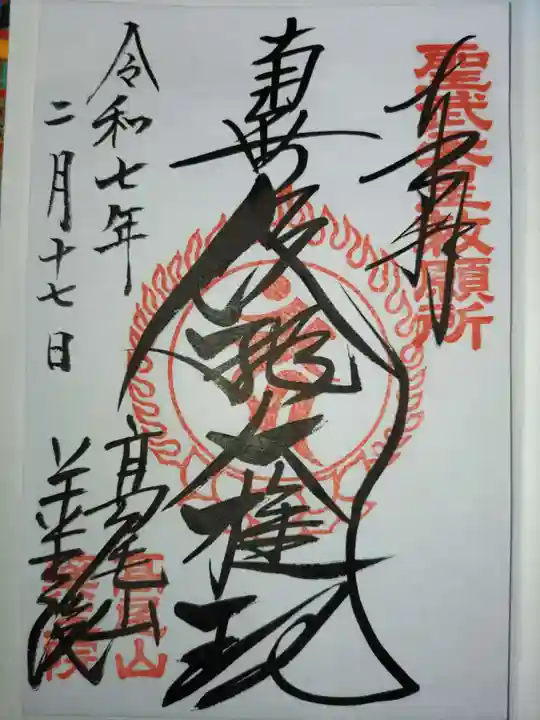 聖武天皇敕願所
奉拝
南無飯縄大権現
令和七年
二月十七日
高尾山
薬王院
高尾山
薬王院